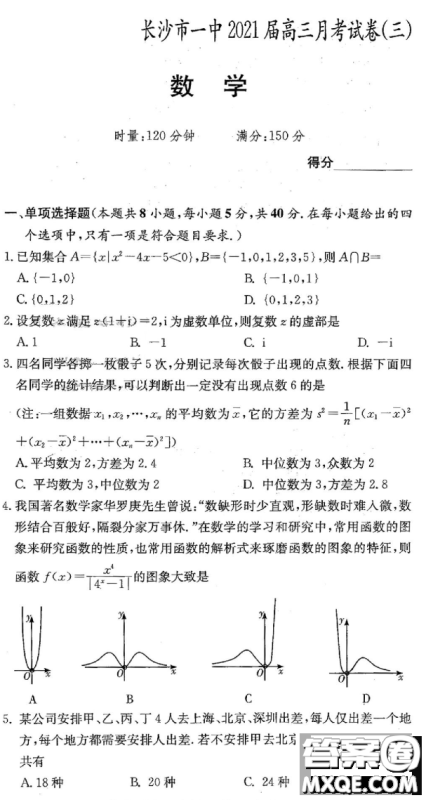 长沙市一中2021届高三月考试卷(三)
数 学
时量:120分钟 满分:150分
得分
一、单项选择题(本题共8小题,每小题5分,共40分.在每小题给出的四
个选项中,只有一项是符合题目要求.)
1.已知集合A={x|x²-4x-5<0},B={-1,0,1,2,3,5},则A∩B=
A.{-1,0} B.{-1,0,1}
C.{0,1,2} D.{0,1,2,3}
2.设复数z满足z(1+i)=2,i为虚数单位,则复数z的虚部是
A.1 B.-1 C.i D.-i
3.四名同学各掷一枚骰子5次,分别记录每次骰子出现的点数.根据下面四
名同学的统计结果,可以判断出一定没有出现点数6的是
(注:一组数据x₁,x₂,…,xₙ的平均数为x̄,它的方差为s²=1/n[(x₁-x̄)²
+(x₂-x̄)²+…+(xₙ-x̄)²])
A.平均数为2,方差为2.4 B.中位数为3,众数为2
C.平均数为3,中位数为2 D.中位数为3,方差为2.8
4.我国著名数学家华罗庚先生曾说:“数缺形时少直观,形缺数时难入微,数
形结合百般好,隔裂分家万事休.”在数学的学习和研究中,常用函数的图
象来研究函数的性质,也常用函数的解析式来琢磨函数的图象的特征,则
函数f(x)=x⁴/|4ˣ-1|的图象大致是
y y y y
O x O x O x O x
A B C D
5.某公司安排甲、乙、丙、丁4人去上海、北京、深圳出差,每人仅出差一个地
方,每个地方都需要安排人出差.若不安排甲去北京
共有
A.18种 B.20种 C.24种
答案圈
MXQE.COM